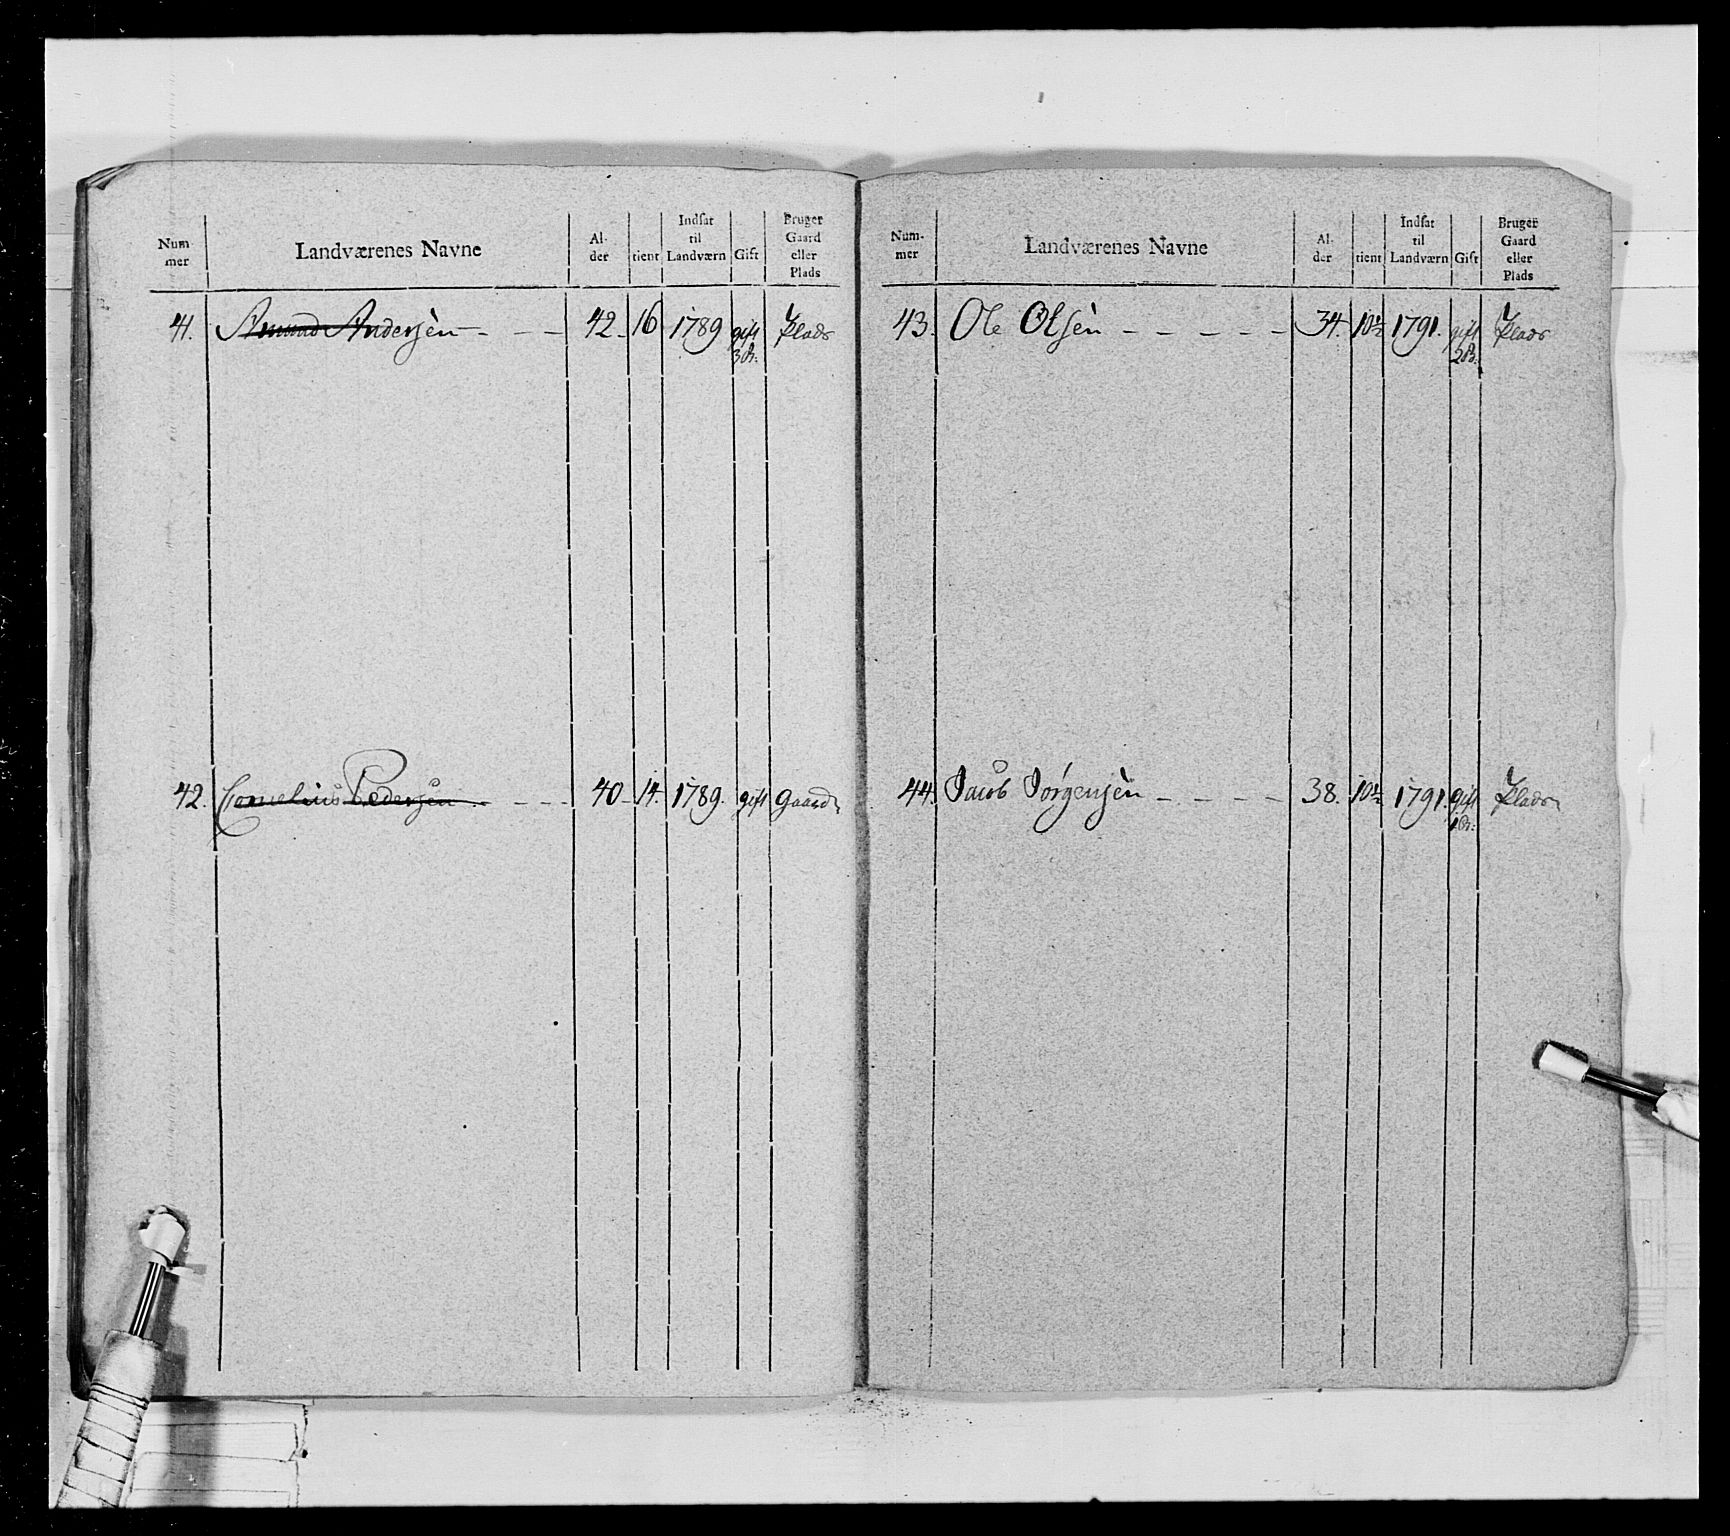 Num-
mer
Landværenes Navne
Al-
der
tient
Indsat
til
Landværn
Gift
Bruger
Gaard
eller
Plads
41. Amund Andersen - - - 42. 16 1789 gift Plads
3 B:
42. Cornelius Pedersen - - - 40. 14. 1789. gift Gaard
Num-
mer
Landværenes Navne
Al-
der
tient
Indsat
til
Landværn
Gift
Bruger
Gaard
eller
Plads
43. Ole Olsen - - - - - 34. 10½ 1791. gift Plads
2 B:
44. Jacob Jørgensen - - - - 38. 10½ 1791. gift Plads
1 B: